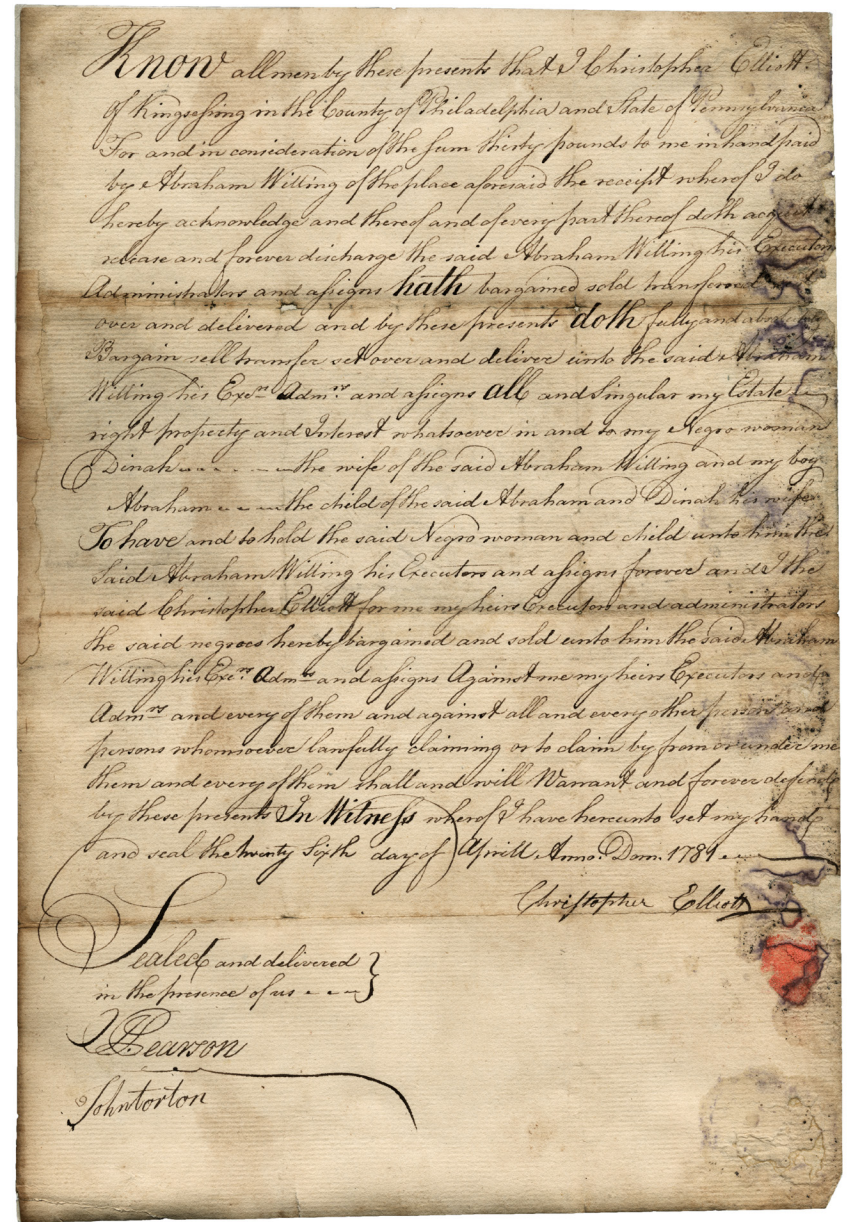 Know all men by these presents that I Christopher Elliott
of Kingsessing in the County of Philadelphia and State of Pennsylvania
For and in consideration of the sum thirty pounds to me in hand paid
by Abraham Willing of the place aforesaid the receipt wherof I do
hereby acknowledge and thereof and of every part thereof doth acquit
release and forever discharge the said Abraham Willing his Executors
Administrators and assigns hath bargained sold transfered
over and delivered and by these presents doth fully and absolutely
Bargain sell transfer set over and deliver unto the said Abraham
Willing his Exers. Admrs. and assigns all and singular my Estate
right property and Interest whatsoever in and to my Negro woman
Dinah - - - - - the wife of the said Abraham Willing and my boy
Abraham - - - the child of the said Abraham and Dinah his wife
To have and to hold the said Negro woman and child unto him the
said Abraham Willing his Executors and assigns forever and I the
said Christopher Elliott for me my heirs Executors and administrators
the said negroes hereby bargained and sold unto him the said Abraham
Willing his Exers. Admrs and assigns Against me my heirs Executors and
Admrs and every of them and against all and every other person and
persons whomsoever lawfully claiming or to claim by from or under me
them and every of them shall and will Warrant and forever defend
by these presents In Witness wherof I have hereunto set my hand
and seal the twenty sixth day of Aprill Anno. Dom. 1781
Christopher Elliott
Sealed and delivered
in the presence of us - - - }
Pearson
John torton